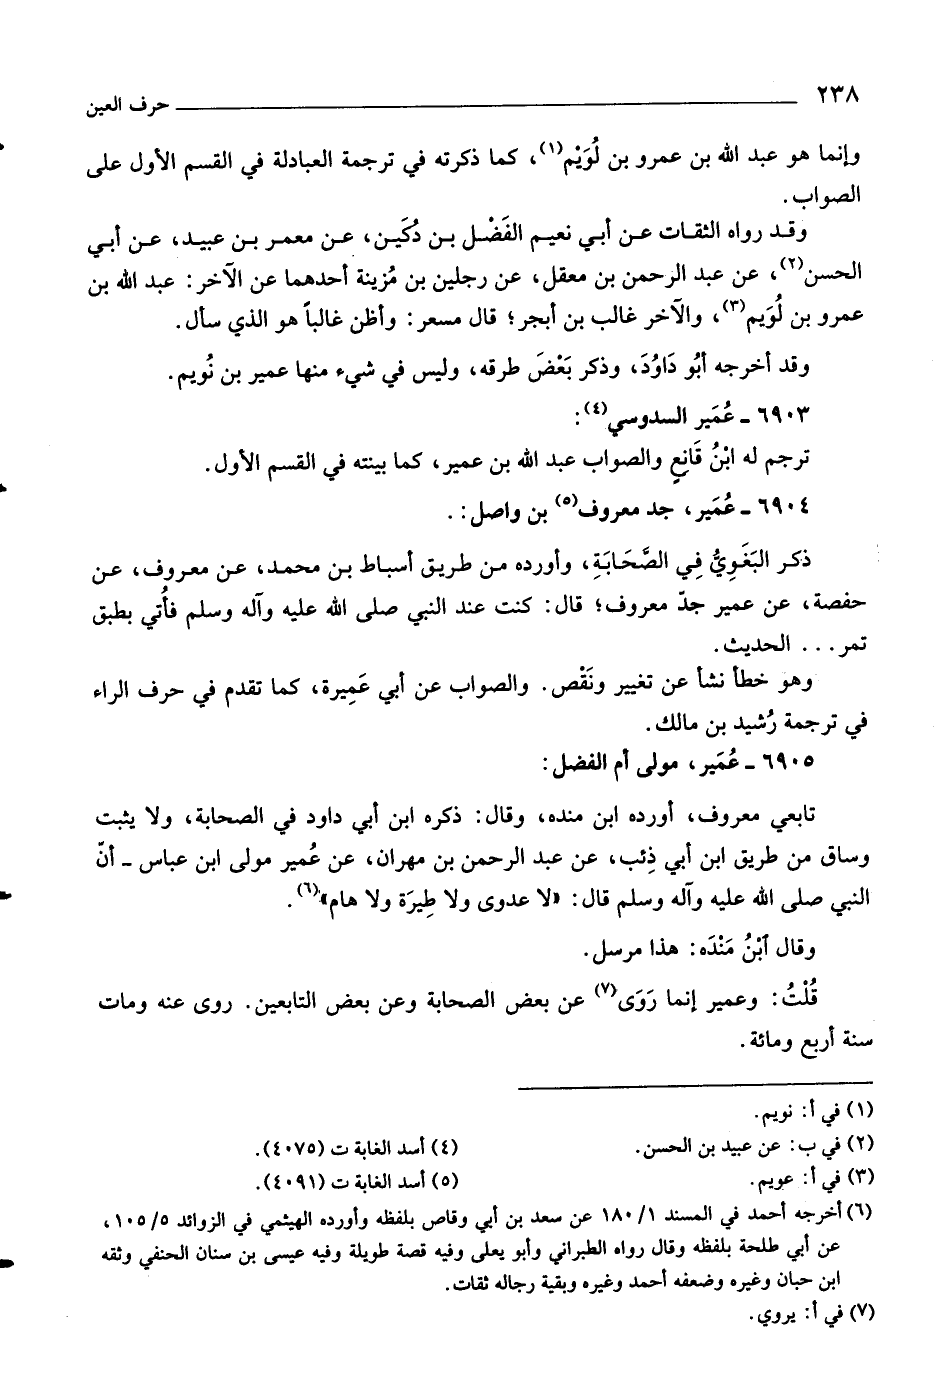 ٢٣٨ حرف العين
وإنما هو عبد الله بن عمرو بن لُوَيْم(١)، كما ذكرته في ترجمة العبادلة في القسم الأول على
الصواب.
وقد رواه الثقات عن أبي نعيم الفَضْل بن دُكَين، عن معمر بن عبيد، عن أبي
الحسن(٢)، عن عبد الرحمن بن معقل، عن رجلين بن مُزينة أحدهما عن الآخر: عبد الله بن
عمرو بن لُوَيم(٣)، والآخر غالب بن أبجر؛ قال مسعر: وأظن غالباً هو الذي سأل.
وقد أخرجه أبُو دَاوُدَ، وذكر بَعْضَ طرقه، وليس في شيء منها عمير بن نُويم.
٦٩٠٣ ـ عُمَير السدوسي(٤):
ترجم له ابْنُ قَانِعٍ والصواب عبد الله بن عمير، كما بينته في القسم الأول.
٦٩٠٤ ـ عُمَير، جد معروف(٥) بن واصل: .
ذكر البَغَوِيُّ فِي الصَّحَابَةِ، وأورده من طريق أسباط بن محمد، عن معروف، عن
حفصة، عن عمير جدّ معروف؛ قال: كنت عند النبي صلى الله عليه وآله وسلم فأُتي بطبق
تمر... الحديث.
وهو خطأ نشأ عن تغيير ونَقْص. والصواب عن أبي عَمِيرة، كما تقدم في حرف الراء
في ترجمة رُشيد بن مالك.
٦٩٠٥ ـ عُمَير، مولى أم الفضل:
تابعي معروف، أورده ابن منده، وقال: ذكره ابن أبي داود في الصحابة، ولا يثبت
وساق من طريق ابن أبي ذِئب، عن عبد الرحمن بن مهران، عن عُمير مولى ابن عباس ـ أنّ
النبي صلى الله عليه وآله وسلم قال: «لا عدوى ولا طِيرَة ولا هام»(٦).
وقال ٱبْنُ مَنْدَه: هذا مرسل.
قُلْتُ: وعمير إنما رَوَى(٧) عن بعض الصحابة وعن بعض التابعين. روى عنه ومات
سنة أربع ومائة.
(١) في أ: نويم.
(٢) في ب: عن عبيد بن الحسن. (٤) أسد الغابة ت (٤٠٧٥).
(٣) في أ: عويم. (٥) أسد الغابة ت (٤٠٩١).
(٦) أخرجه أحمد في المسند ١/ ١٨٠ عن سعد بن أبي وقاص بلفظه وأورده الهيثمي في الزوائد ٥/ ١٠٥،
عن أبي طلحة بلفظه وقال رواه الطبراني وأبو يعلى وفيه قصة طويلة وفيه عيسى بن سنان الحنفي وثقه
ابن حبان وغيره وضعفه أحمد وغيره وبقية رجاله ثقات.
(٧) في أ: يروي.